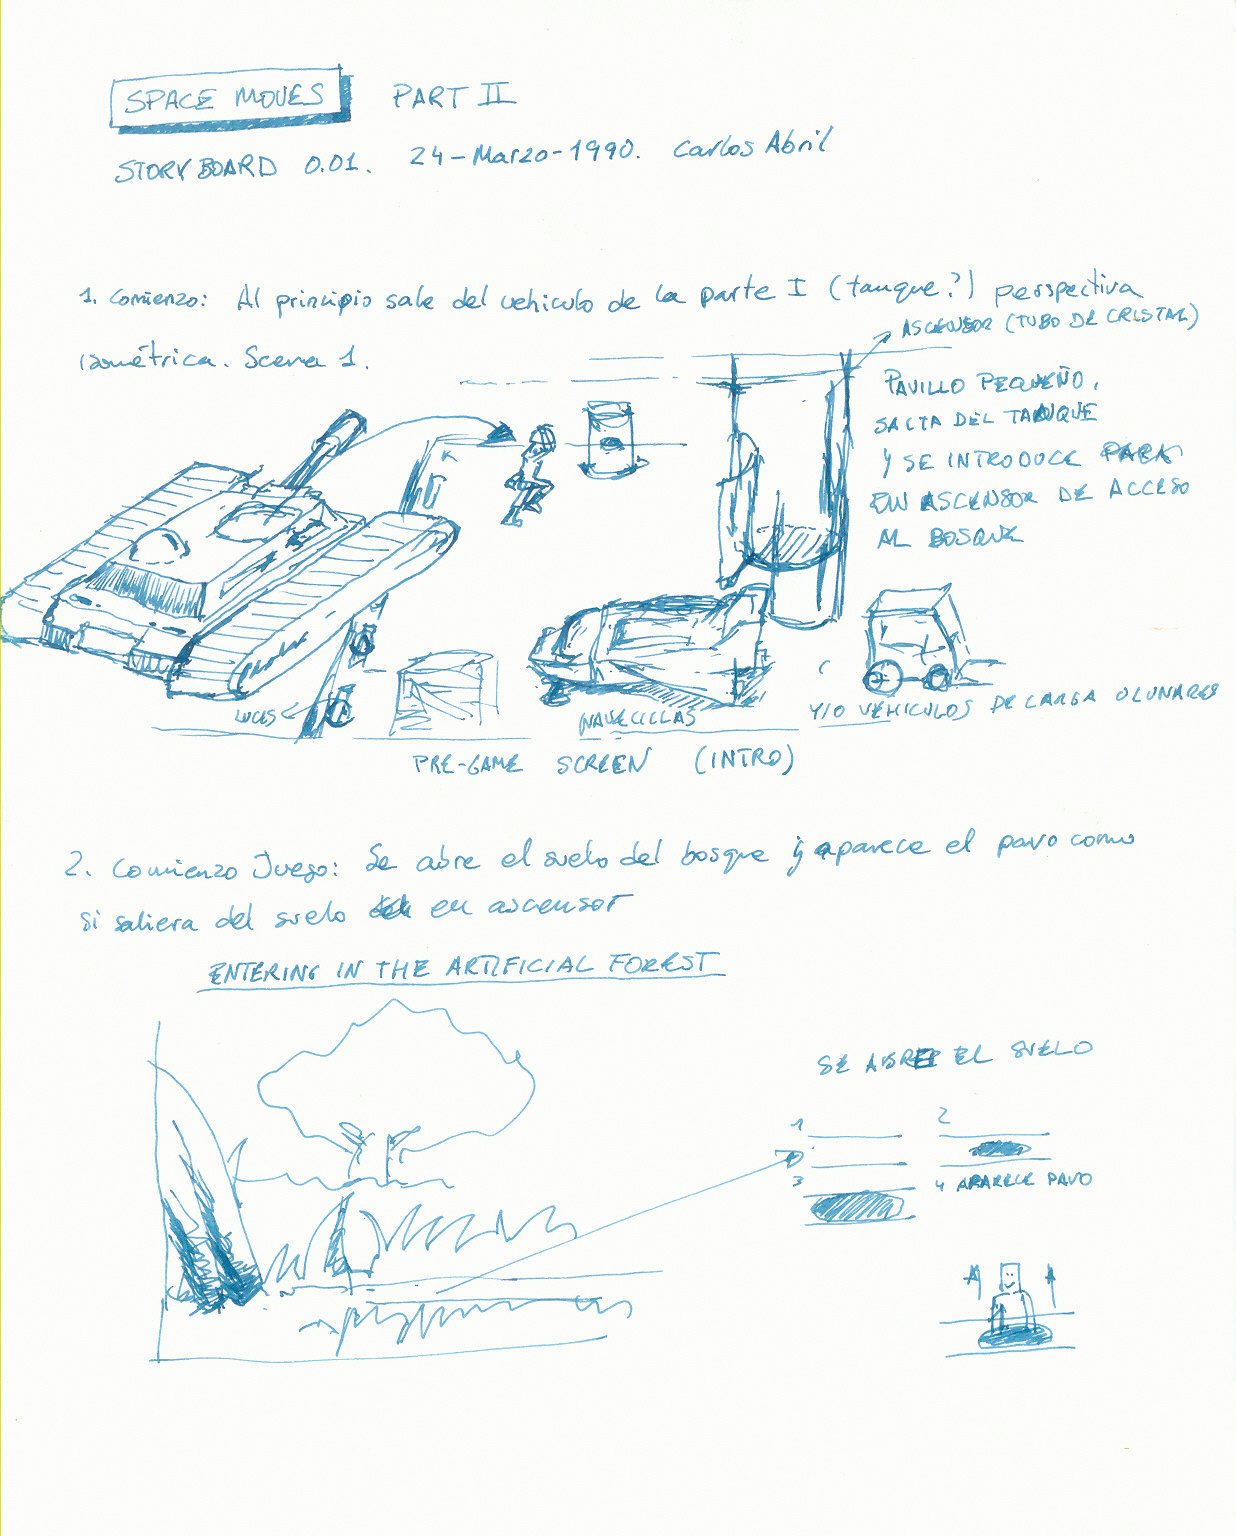 SPACE MOVES PART II
STORYBOARD 0.01. 24-Marzo-1990. Carlos Abril
1. Comienzo: Al principio sale del vehiculo de la parte I (tanque?) perspectiva
isométrica. Scena 1.
ASCENSOR (TUBO DE CRISTAL)
PAVILLO PEQUEÑO,
SALTA DEL TANQUE
Y SE INTRODUCE PARA
EN ASCENSOR DE ACCESO
AL BOSQUE
LUCES
NAVECILLAS
Y/O VEHICULOS DE CARGA O LUNARES
PRE-GAME SCREEN (INTRO)
2. Comienzo Juego: Se abre el suelo del bosque y aparece el pavo como
si saliera del suelo en ascensor
ENTERING IN THE ARTIFICIAL FOREST
SE ABRE EL SUELO
1 2
3 4 APARECE PAVO